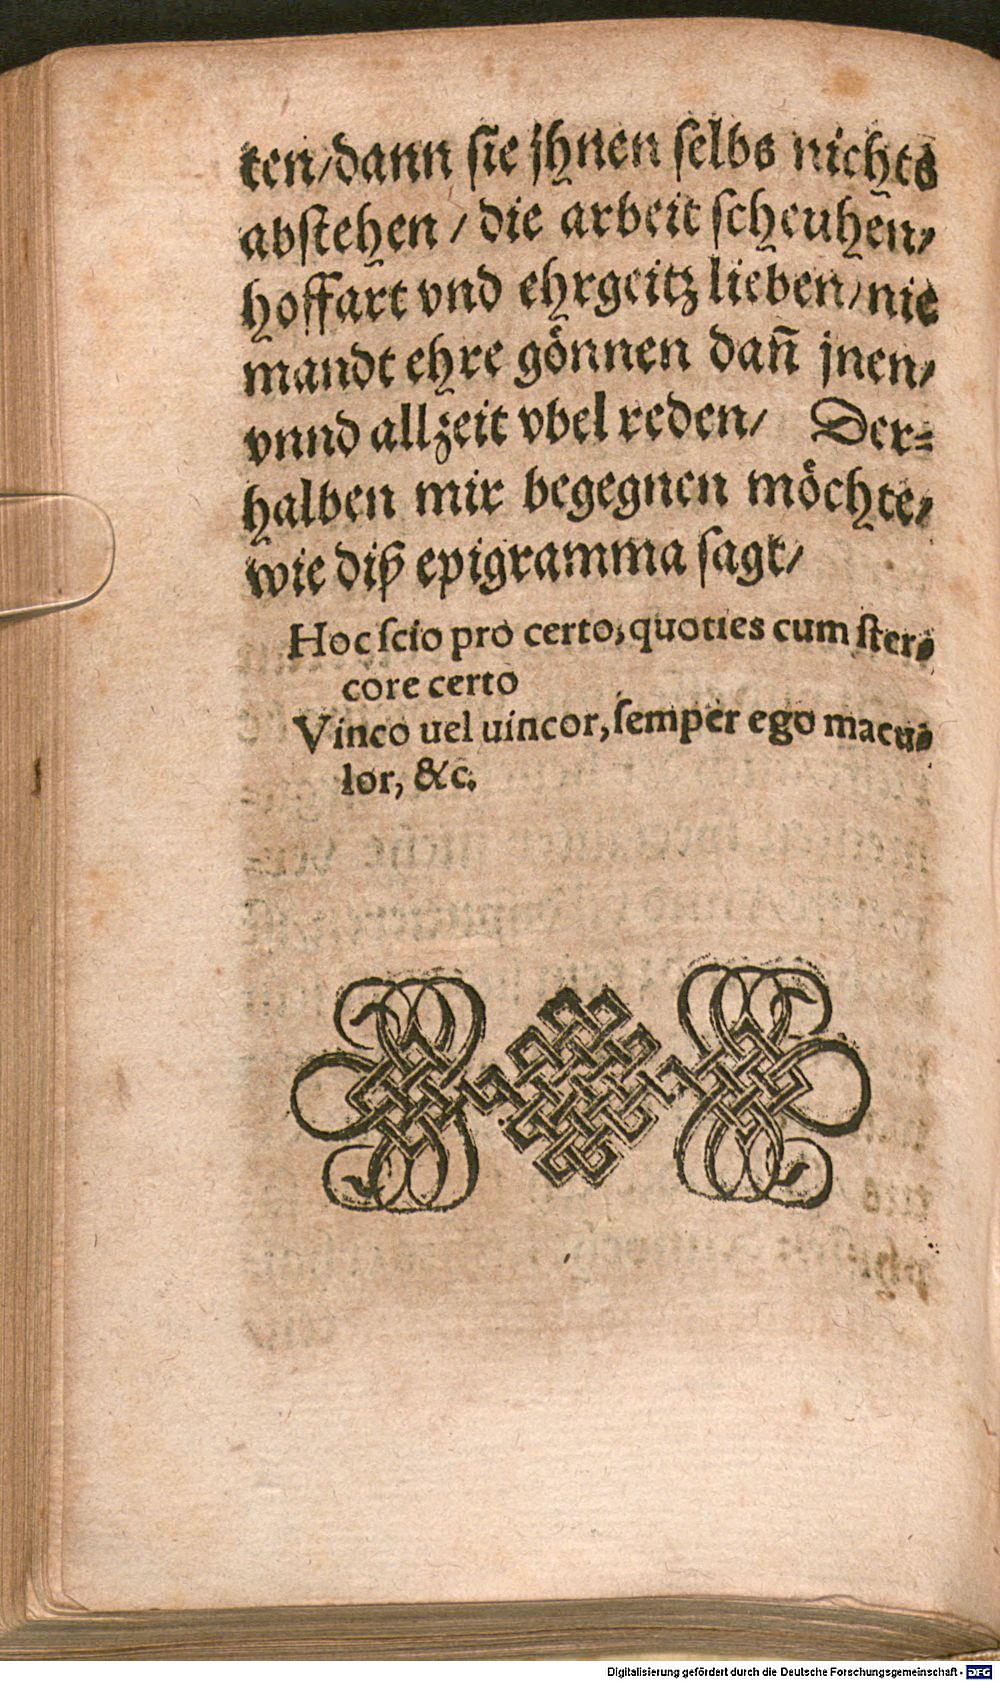 ten/dann sie jhnen selbs nichts
abstehen / die arbeit scheuhen/
hoffart vnd ehrgeitz lieben/nie
mandt ehre gönnen dañ jnen/
vnnd allzeit vbel reden/ Der=
halben mir begegnen möchte/
wie diß epigramma sagt/
Hoc ſcio pro certo, quoties cum ſter=
core certo
Vinco uel uincor, ſemper ego macu=
lor, &c.
Digitalisierung gefördert durch die Deutsche Forschungsgemeinschaft - DFG